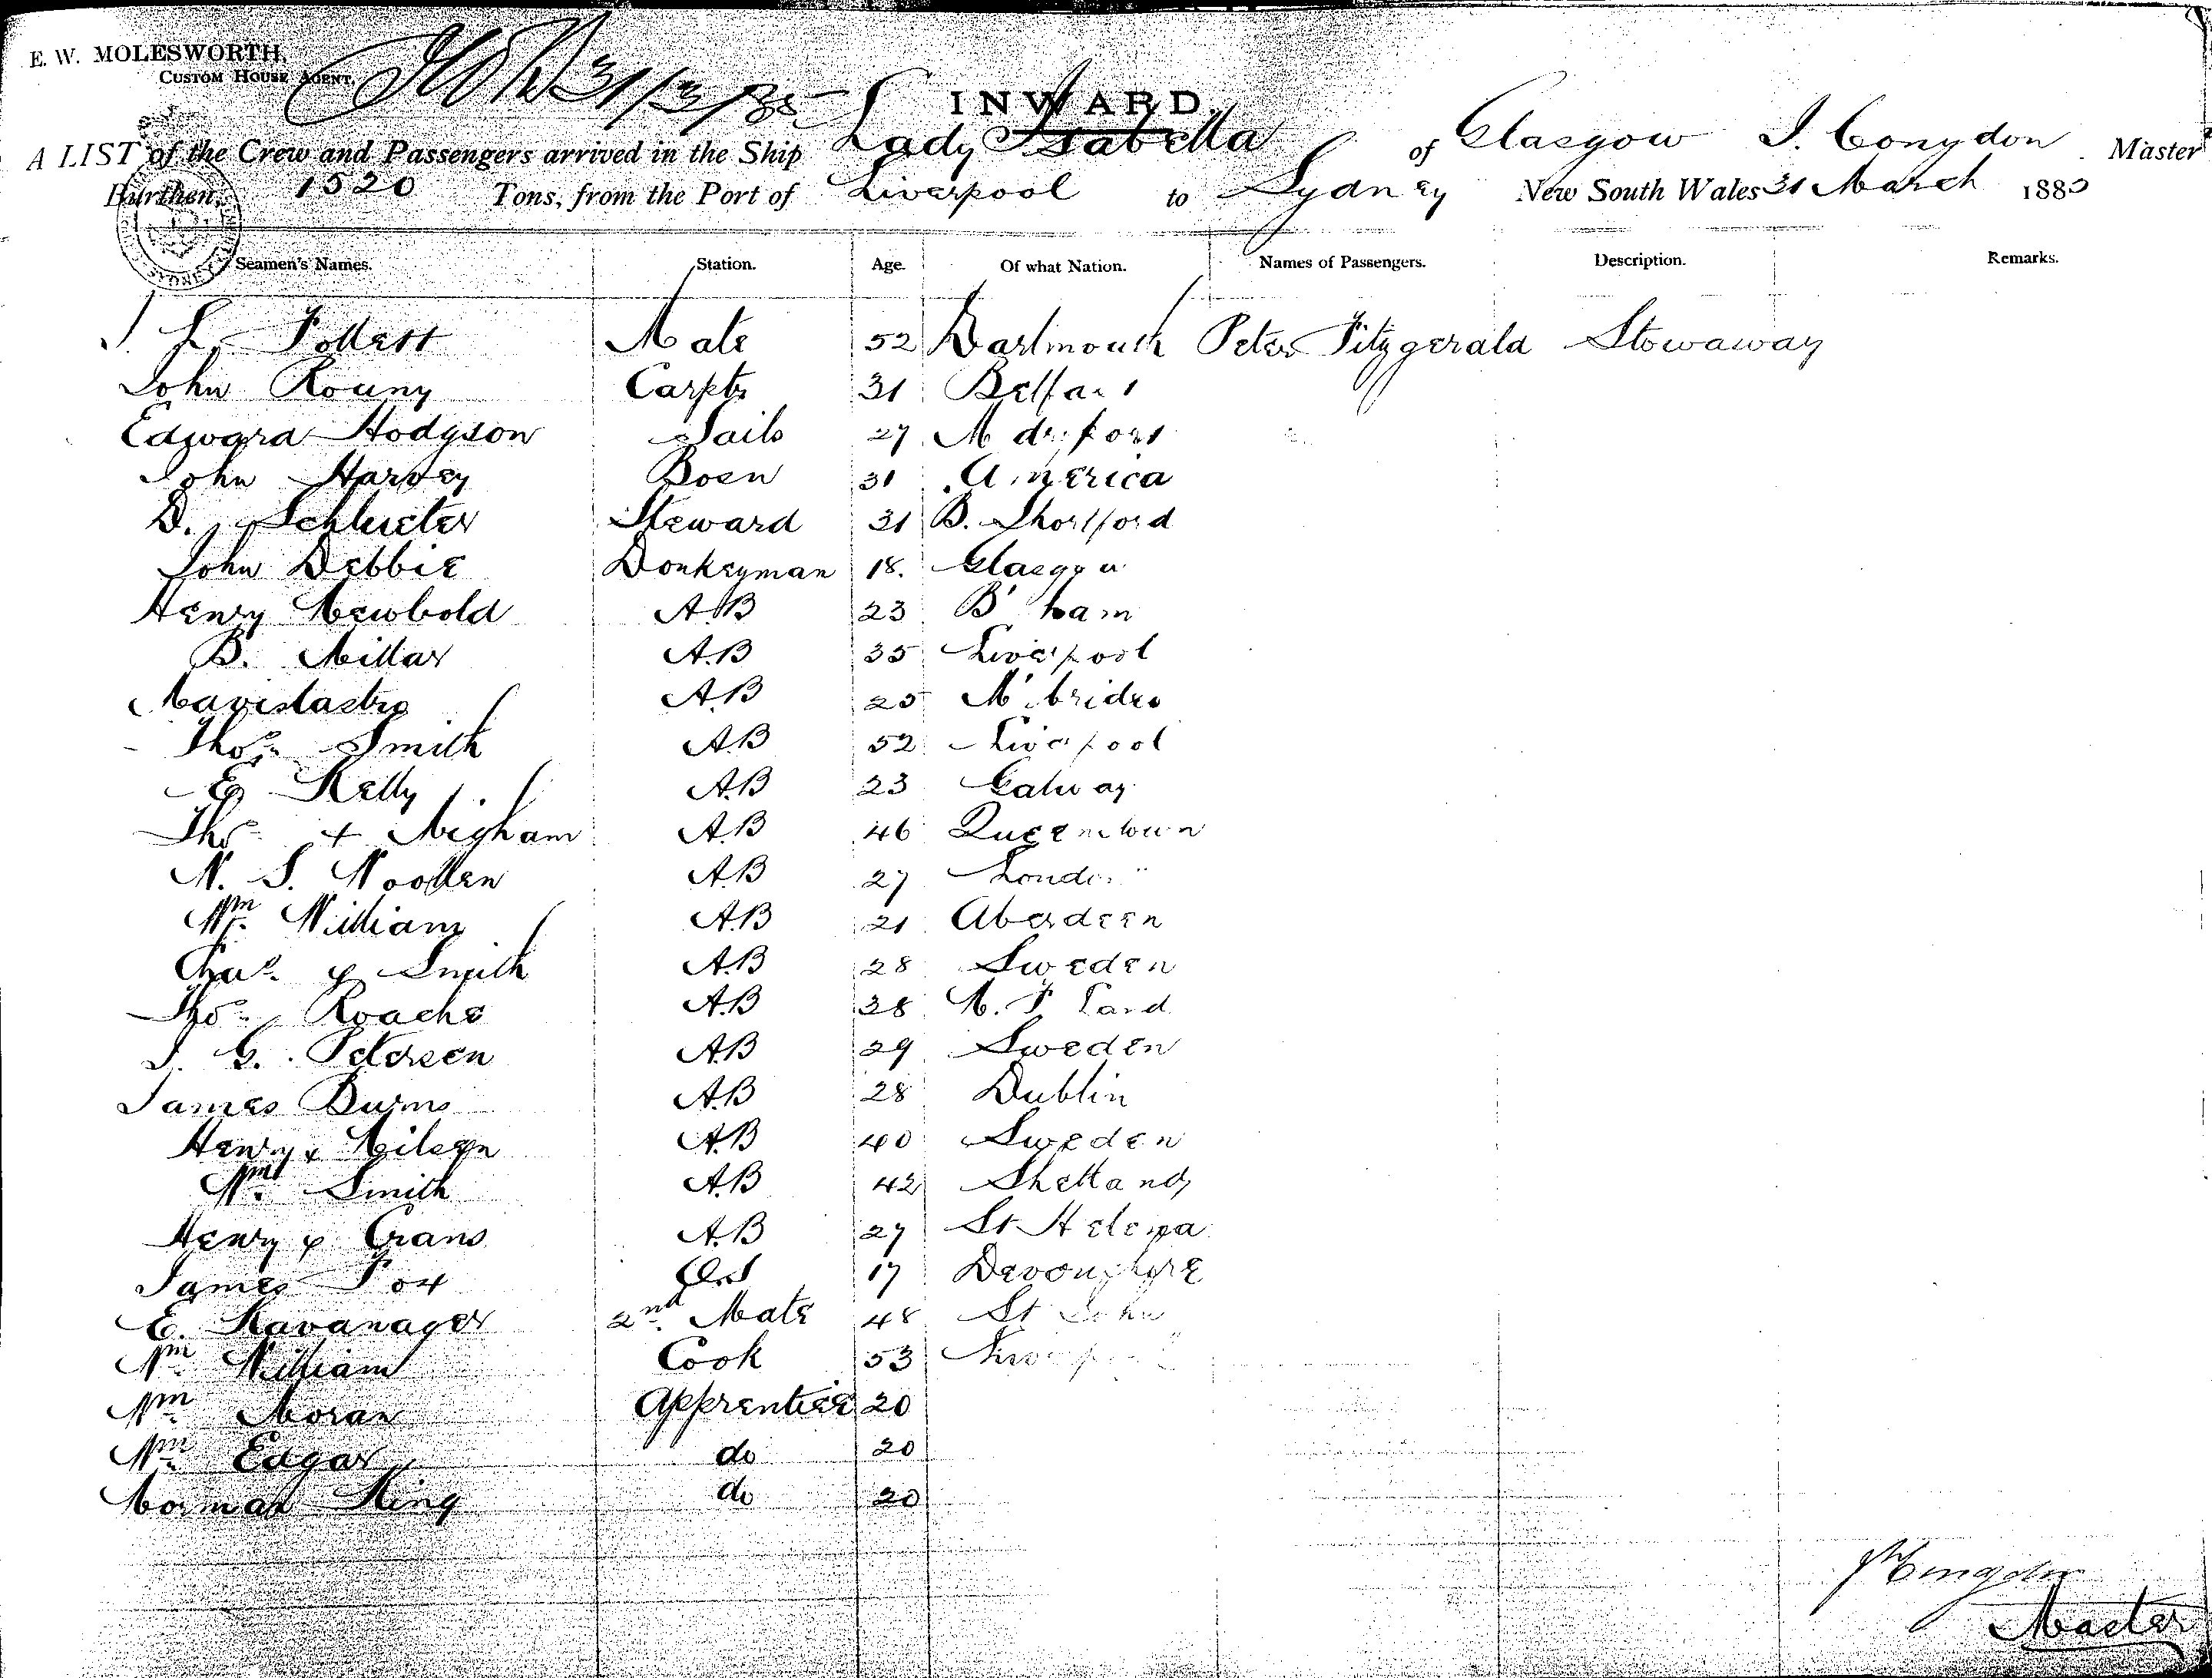 E. W. MOLESWORTH,
CUSTOM HOUSE AGENT,
31/3/85
INWARD.
A LIST of the Crew and Passengers arrived in the Ship Lady Isabella of Glasgow J. Congdon Master
Burthen, 1520 Tons, from the Port of Liverpool to Sydney New South Wales 31 March 1885
Seamen's Names. Station. Age. Of what Nation. Names of Passengers. Description. Remarks.
Follett Mate 52 Dartmouth Peter Fitzgerald Stowaway
John Rouny Carptr 31 Belfast
Edward Hodgson Sails 27
John Harvey Bosn 31 America
D. Schlueter Steward 31 B. Shortford
John Debbie Donkeyman 18. Glasgow
Henry Newbold A.B 23 B'ham
B. Millar A.B 35 Liverpool
A.B 25
Thos Smith A.B 52 Liverpool
E Kelly A.B 23 Galway
Thos + Nigham A.B 46 Queenstown
W. S. Woollen A.B 27 London
Wm William A.B 21 Aberdeen
Chas Smith A.B 28 Sweden
Thos Roache A.B 38 N. F Land
J. G. Petersen A.B 29 Sweden
James Burns A.B 28 Dublin
Henry x Nilsen A.B 40 Sweden
Wm Smith A.B 42 Shetland
Henry Crans A.B 27 St Helena
James Fox O.S 17 Devonshire
E. Kavanager 2nd Mate 48 St John
Wm William Cook 53 Liverpool
Wm Moran Apprentice 20
Wm Edgar do 20
Norman King do 20
Congdon
Master